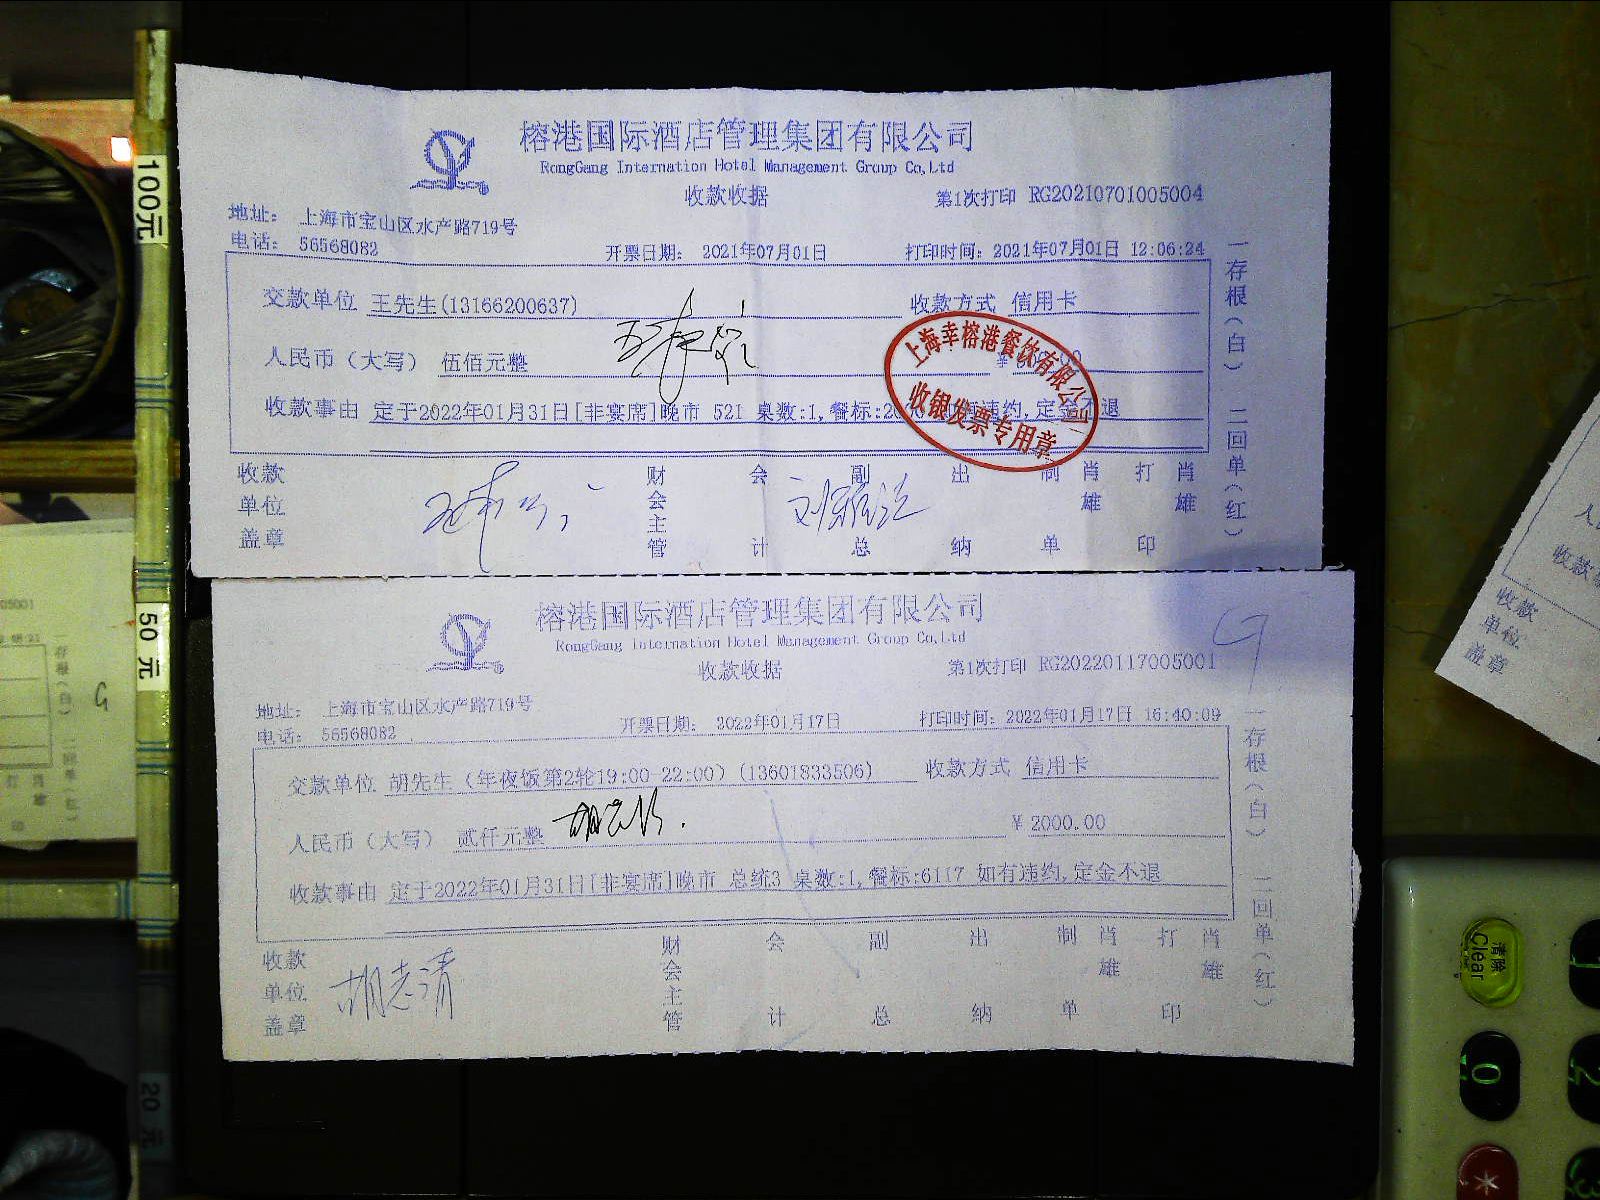 榕港国际酒店管理集团有限公司
RongGang Internation Hotel Management Group Co,Ltd
收款收据
第1次打印 RG20210701005004
地址： 上海市宝山区水产路719号
电话： 56568082
开票日期： 2021年07月01日
打印时间：2021年07月01日 12:06:24
交款单位 王先生(13166200637)
收款方式 信用卡
人民币（大写） 伍佰元整
收款事由 定于2022年01月31日[非宴席]晚市 521 桌数:1,餐标:2 违约,定金不退
上海幸榕港餐饮有限公司
收银发票专用章
收款单位盖章
财会主管
会计
副总
出纳
制单
肖雄
打印
肖雄
一存根（白） 二回单（红）
榕港国际酒店管理集团有限公司
RongGang Internation Hotel Management Group Co,Ltd
收款收据
第1次打印 RG20220117005001
地址： 上海市宝山区水产路719号
电话： 56568082
开票日期： 2022年01月17日
打印时间：2022年01月17日 16:40:09
交款单位 胡先生（年夜饭第2轮19:00-22:00）(13601833506)
收款方式 信用卡
人民币（大写） 贰仟元整
￥2000.00
收款事由 定于2022年01月31日[非宴席]晚市 总统3 桌数:1,餐标:6117 如有违约,定金不退
收款单位盖章
胡志清
财会主管
会计
副总
出纳
制单
肖雄
打印
肖雄
一存根（白） 二回单（红）
100元
50元
20元
收款
单位
盖章
清除
Clear
0